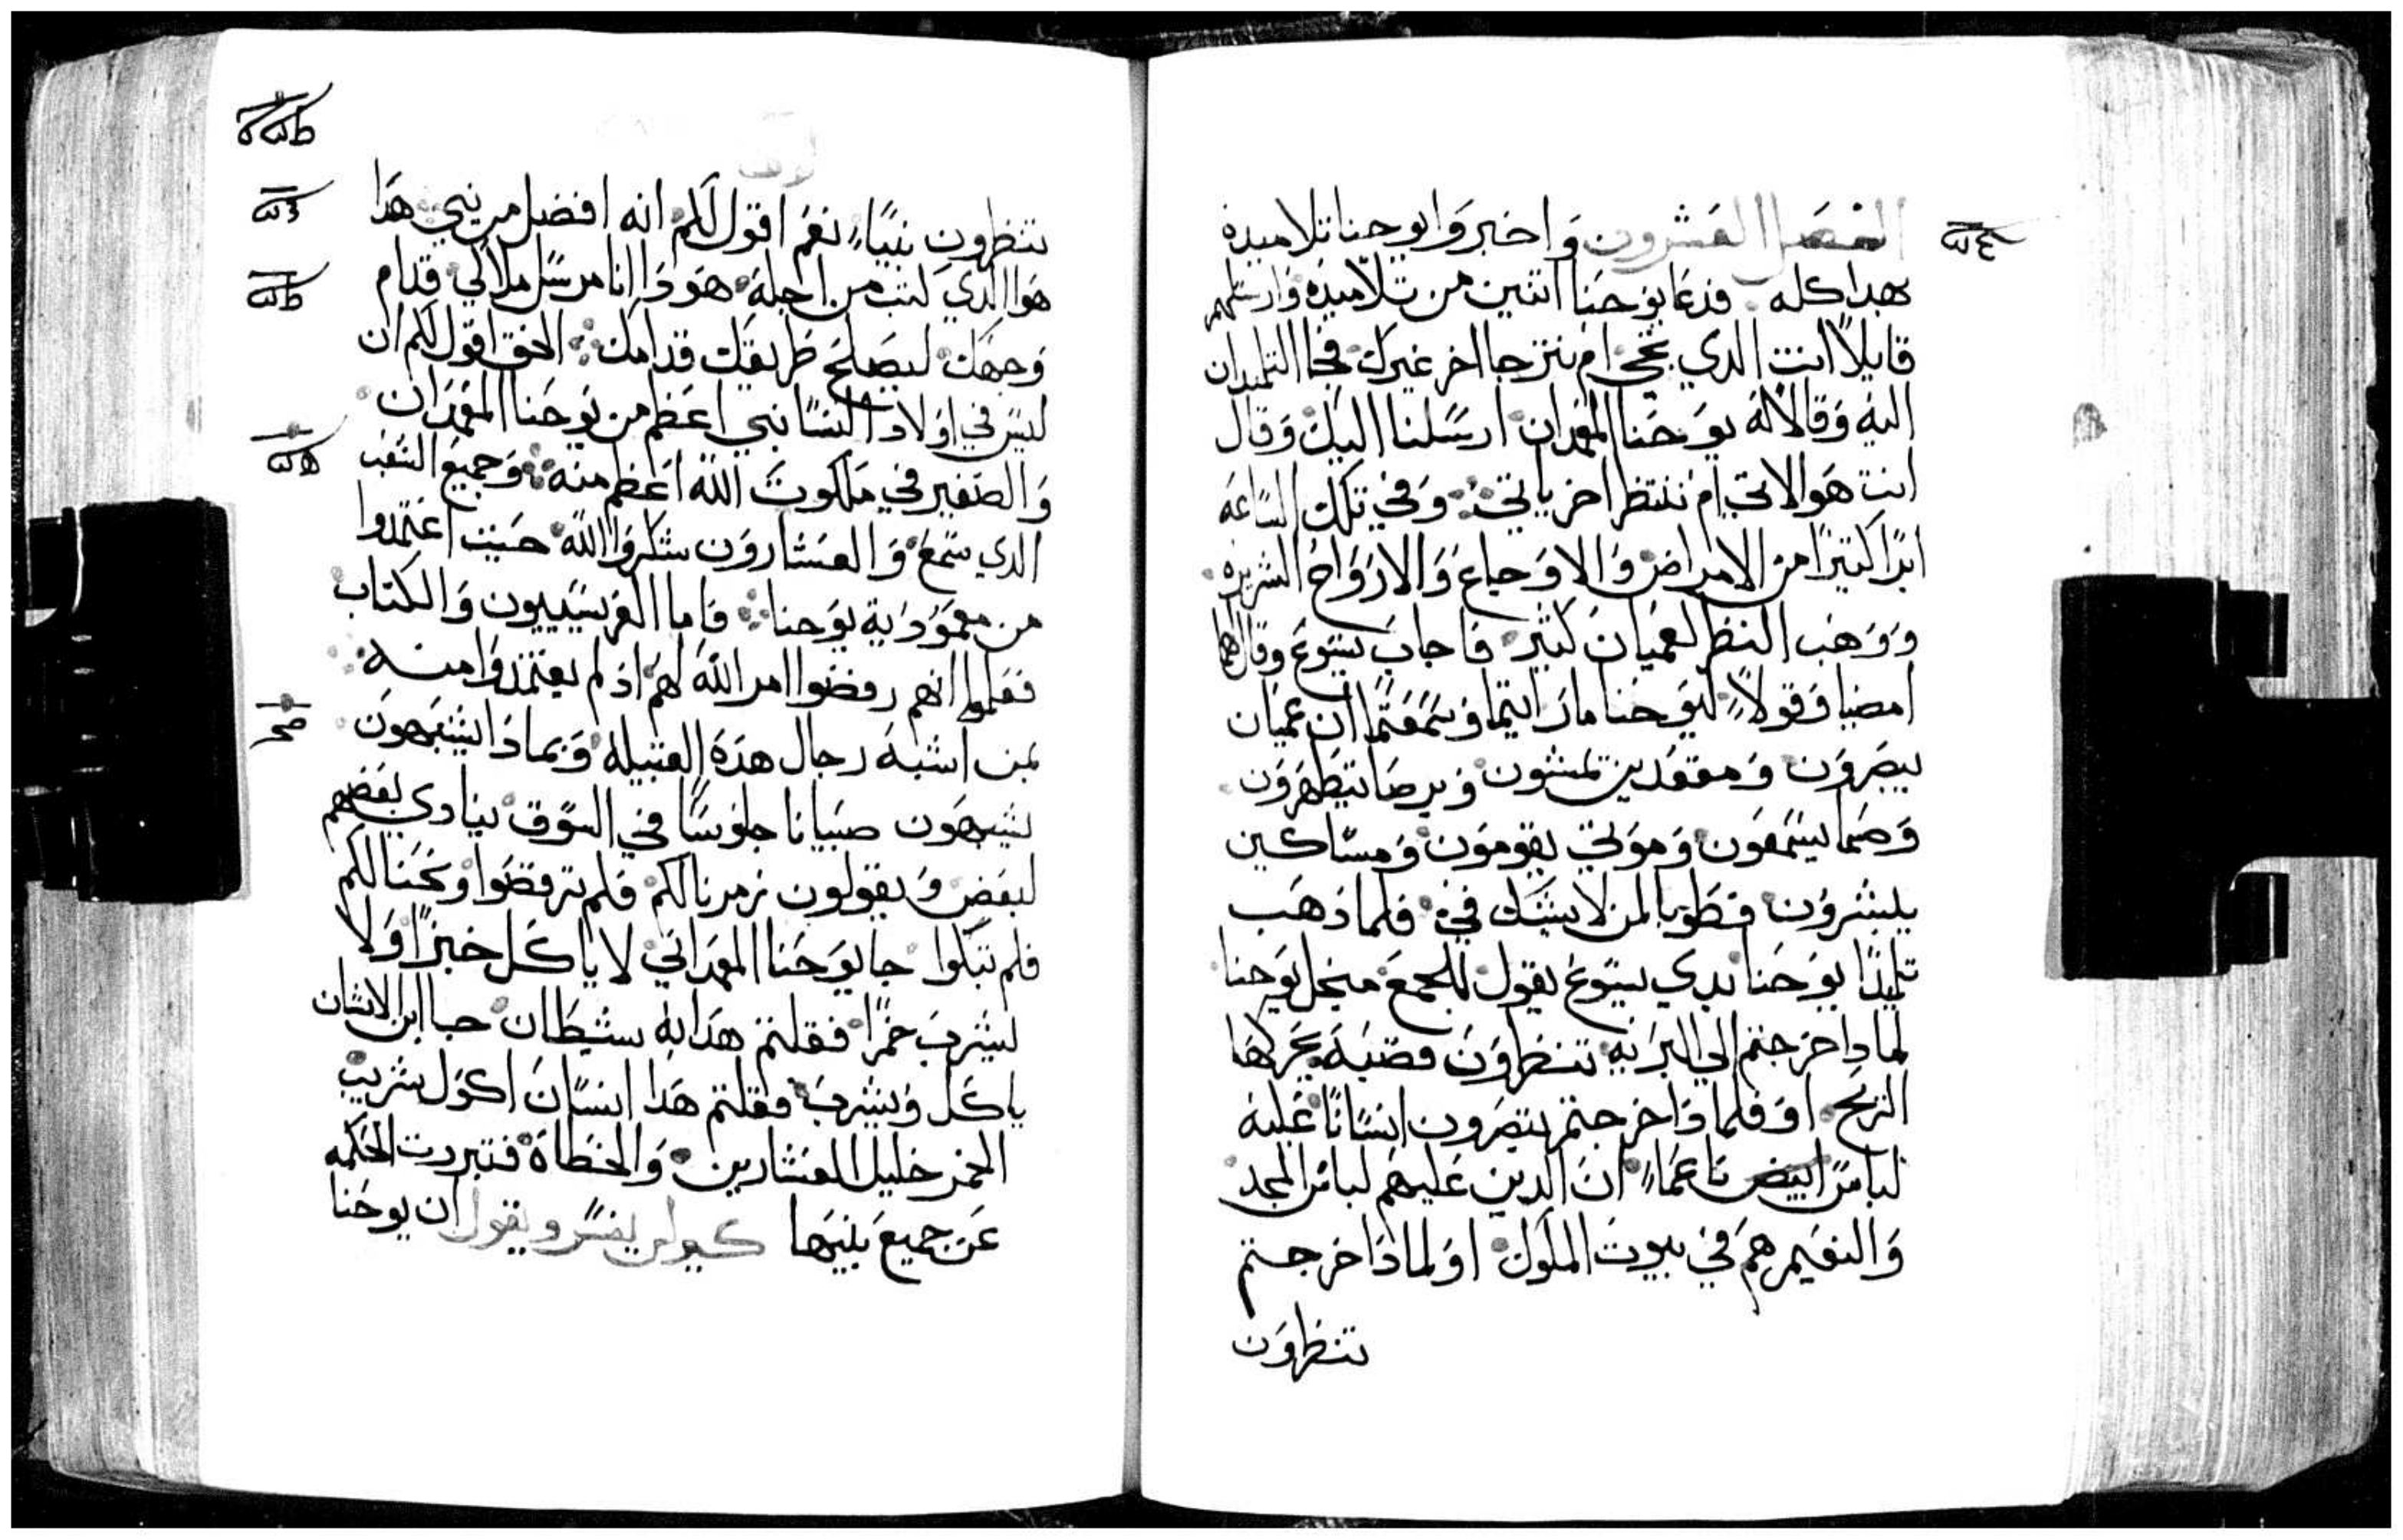 الفصل العشرون وَاخبروَا يوحنا تلاميده
بهدا كله فدعَا يوَحنَا اتنين من تلاميدهُ وَارسَلهم
قايلاً انت الدي تجي ام ننترجا اخر غيرك فجا التلميدان
اليهِ وَقالا لهُ يوَحنا المعمدان ارسَلنا اليك وَقال
انت هوَ الاتي ام ننتظر اخر ياتي وَفي تلك السَاعَه
ابرَا كتيرًا من الامراض وَالاوَجاع وَالارَوَاح الشريرَه
وَوَهَب النظر لعميَان كتير فاجابَ يسَوع وقال لهما
امضيا وَقولاً ليوَحنا ما رَايتما وَسَمعَتما ان عميَان
يبصَروَن وَمقعَدين تمشون وَبرصَا تتطهرَوَن
وَصَما يسَمَعَون وَموَتي يقوموَن وَمسَاكين
يبشروَن فطوَبا لمن لا يشَك فيَ فلما دَهَب
تلميدَا يوَحنا بدي يسَوع يقول للجمعَ من اجل يوَحنا
لمادا خرَجتم الي البرَيه تنظروَن قصَبَة تحَركها
الريَح اوَ فلمادَا خرَجتم تنتظرون انسَانًا عَليه
لباسَ ابيض ناعَمَا ان الدين عَليهم لباسَ المجد
وَالنعَيم هم في بيوت الملوَك اوَ لمادَا خرجتم
تنظروَن
تنظرون نبيًا نعَم اقول لكم انه افضل من نبي هدَا
هوَا الدي كتب من اجله هوَدَا انا مرسَل ملاكي قدام
وَجهَك ليصَلح طريقك قدامك الحق اقول لكم ان
ليسَ في اوَلاد النسَا نبي اعَظم من يوَحنا المعَمَدَان
وَالصَغير في ملكوت الله اعَظم منه وَجميع الشعَب
الدي سَمع وَالعَشاروَن شكروَا الله حيَيت اعَتمدوا
من معَموَدَاية يوَحنا فاما الفريسَيون وَالكتاب
فعَلموا انهم رفضوا امر الله لهم اد لم يعتمدوَا منه
بمن اشبه رجال هدَه القبيله وَبمادَا يشبَهون
يشبَهَون صبيانا جلوسَا في السَوَق ينادي بعَضهم
لبعَض وَيقولون زمرنا لكم فلم ترقصَوا وَنحَنا لكم
فلم تبكوا جا يوَحَنا المعمدَاني لا ياكَل خبزًا وَلا
يشربَ خمرًا فقلتم هدَا به شيطَان جا ابن الانسَان
ياكَل وَيشربَ فقلتم هدَا انسَان اكوَل شريب
الخمر خليل للعَشارين وَالخطاة فتبررت الحكمه
عَن جميع بنيَها كيرلس يفسَر ويقول ان يوحَنا